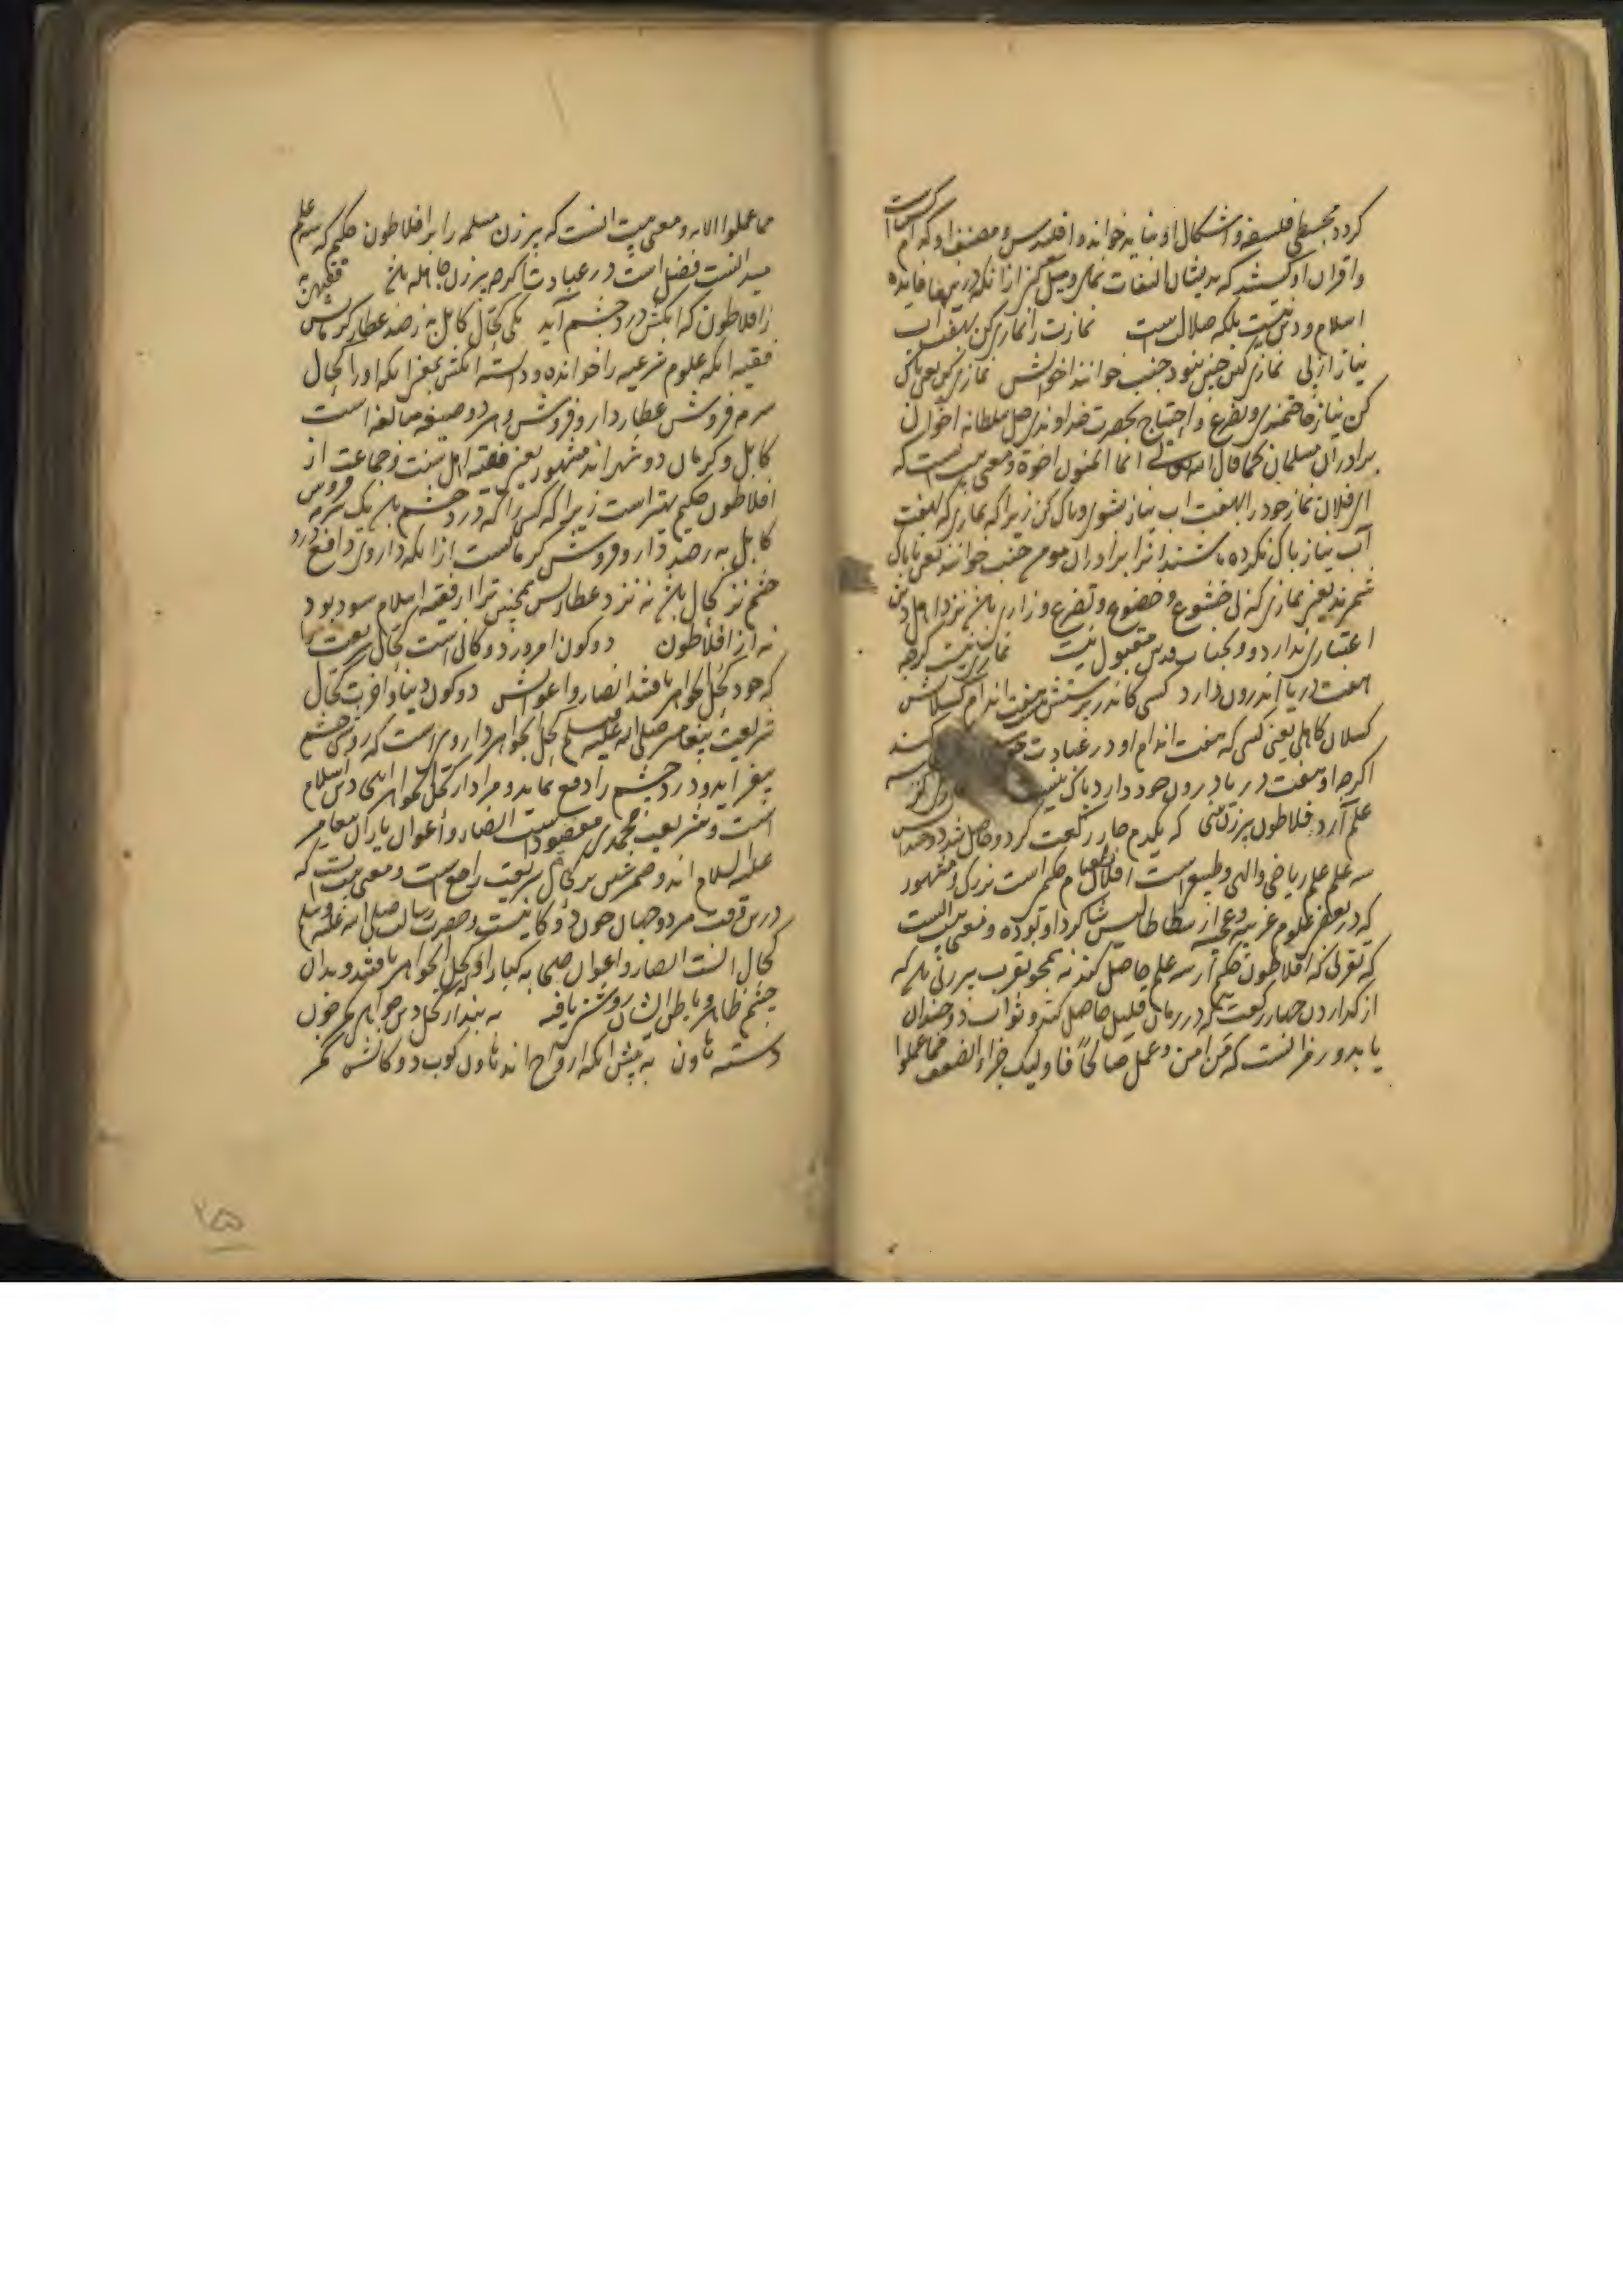 کردد مجسطی فلسفه و اشکال او نباید خواند و اقلیدس و مصنف او که نام کتاب است
و اقران او کشد که بدیشان التفات نمای و میل مکن از آنکه درینها فایده
اسلام و دین نیست بلکه ضلال است نمازت را نمازی کن بهفت آب
نیاز ار نی نمازی کاین چنین نبود جنب خوانند اخوانش نمازی کن یعنی پاک
کن نیاز حاجتمندی و تضرع و احتیاج بحضرت خداوندی جل سلطانه اخوان
برادران مسلمان کما قال الله تعالی انما المؤمنون اخوة و معنی بیت آنست که
ای فلان نماز خود را بهفت آب نیاز بشوی و پاک کن زیرا که نمازی که بهفت
آب نیاز پاک نکرده باشند آنرا برادران مومن جنب خوانند یعنی ناپاک
شمرند یعنی نمازی که بی خشوع و خضوع و تضرع و زاری باشد نزد اهل دین
اعتباری ندارد و بجناب قدس مقبول نیست نمازی نیست گرچه
هفت دریا اندرون دارد کسی کاندر پرستش هفت اندام کسلانش
کسلان کاهلی یعنی کسی که هفت اندام او در عبادت کند
اگرچه او هفت دریا درون خود دارد پاک نیست
علم آرد فلاطون پیرزن بینی که یکدم چار رکعت کرد و حاصل شد دو چندانش
سه علم علم ریاضی و الهی و طبیعی است افلاطون نام حکیم است بزرک و مشهور
که در بعضی علوم غریبه و عجیبه ارسطاطالیس شاگرد او بوده و معنی بیت آنست
که تقربی که افلاطون حکیم از سه علم حاصل کند نه همچو تقرب پیرزنی باشد که
از گذاردن چهار رکعت که در زمان قلیل حاصل کند و ثواب دو چندان
یابد و رمز آنست که من امن و عمل صالحاً فاولئک جزاء الضعف مما عملوا
مما عملوا الایه و معنی بیت آنست که پیرزن مسلمه را بر افلاطون حکیم که سه علم
میدانست فضل است در عبادت اگرچه پیرزن جاهله باشد فقیهی به
ز افلاطون که آنکش درد چشم آید یکی کحال کابل به ز صد عطار کرمانش
فقیه آنکه علوم شرعیه را خوانده و دانسته آنکش یعنی آنکه او را کحال
سرمه فروش عطار دارو فروش و هر دو صیغه مبالغه است
کابل و کرمان دو شهر اند مشهور یعنی فقیه اهل سنت و جماعت از
افلاطون حکیم بهتر است زیرا که کسی را که درد چشم باشد یک سرمه فروش
کابل به ز صد دارو فروش کرمانست از آنکه داروی دافع درد
چشم نزد کحال باشد نه نزد عطار پس همچنین ترا از فقیه اسلام سود بود
نه از افلاطون دو کون امروز دوکانی است کحال شریعت را
که خود کحل الجواهر یافتند انصار و اعوانش دو کون دنیا و آخرت کحال
شریعت پیغامبر صلی الله علیه وسلم کحل الجواهر داروی است که روشنی چشم
بیفزاید و درد چشم را دفع نماید و مراد از کحل الجواهر اینجا دین اسلام
است و شریعت محمدی مقصود است انصار و اعوان یاران پیغامبر
علیه السلام اند و ضمیر شین بر کحال شریعت راجع است و معنی بیت آنست که
درین وقت هر دو جهان چون دو دوکانیست و حضرت رسالت صلی الله علیه وسلم
کحال آنست انصار و اعوان صحابه کبار او که کحل الجواهر یافتند و بدان
چشم ظاهر و باطن ایشان روشنی یافته به بندار کحل دین جواهر همچون
دسته هاون به پیش آنکه ارواح اند هاون کوب دوکانش مگر
۲۵